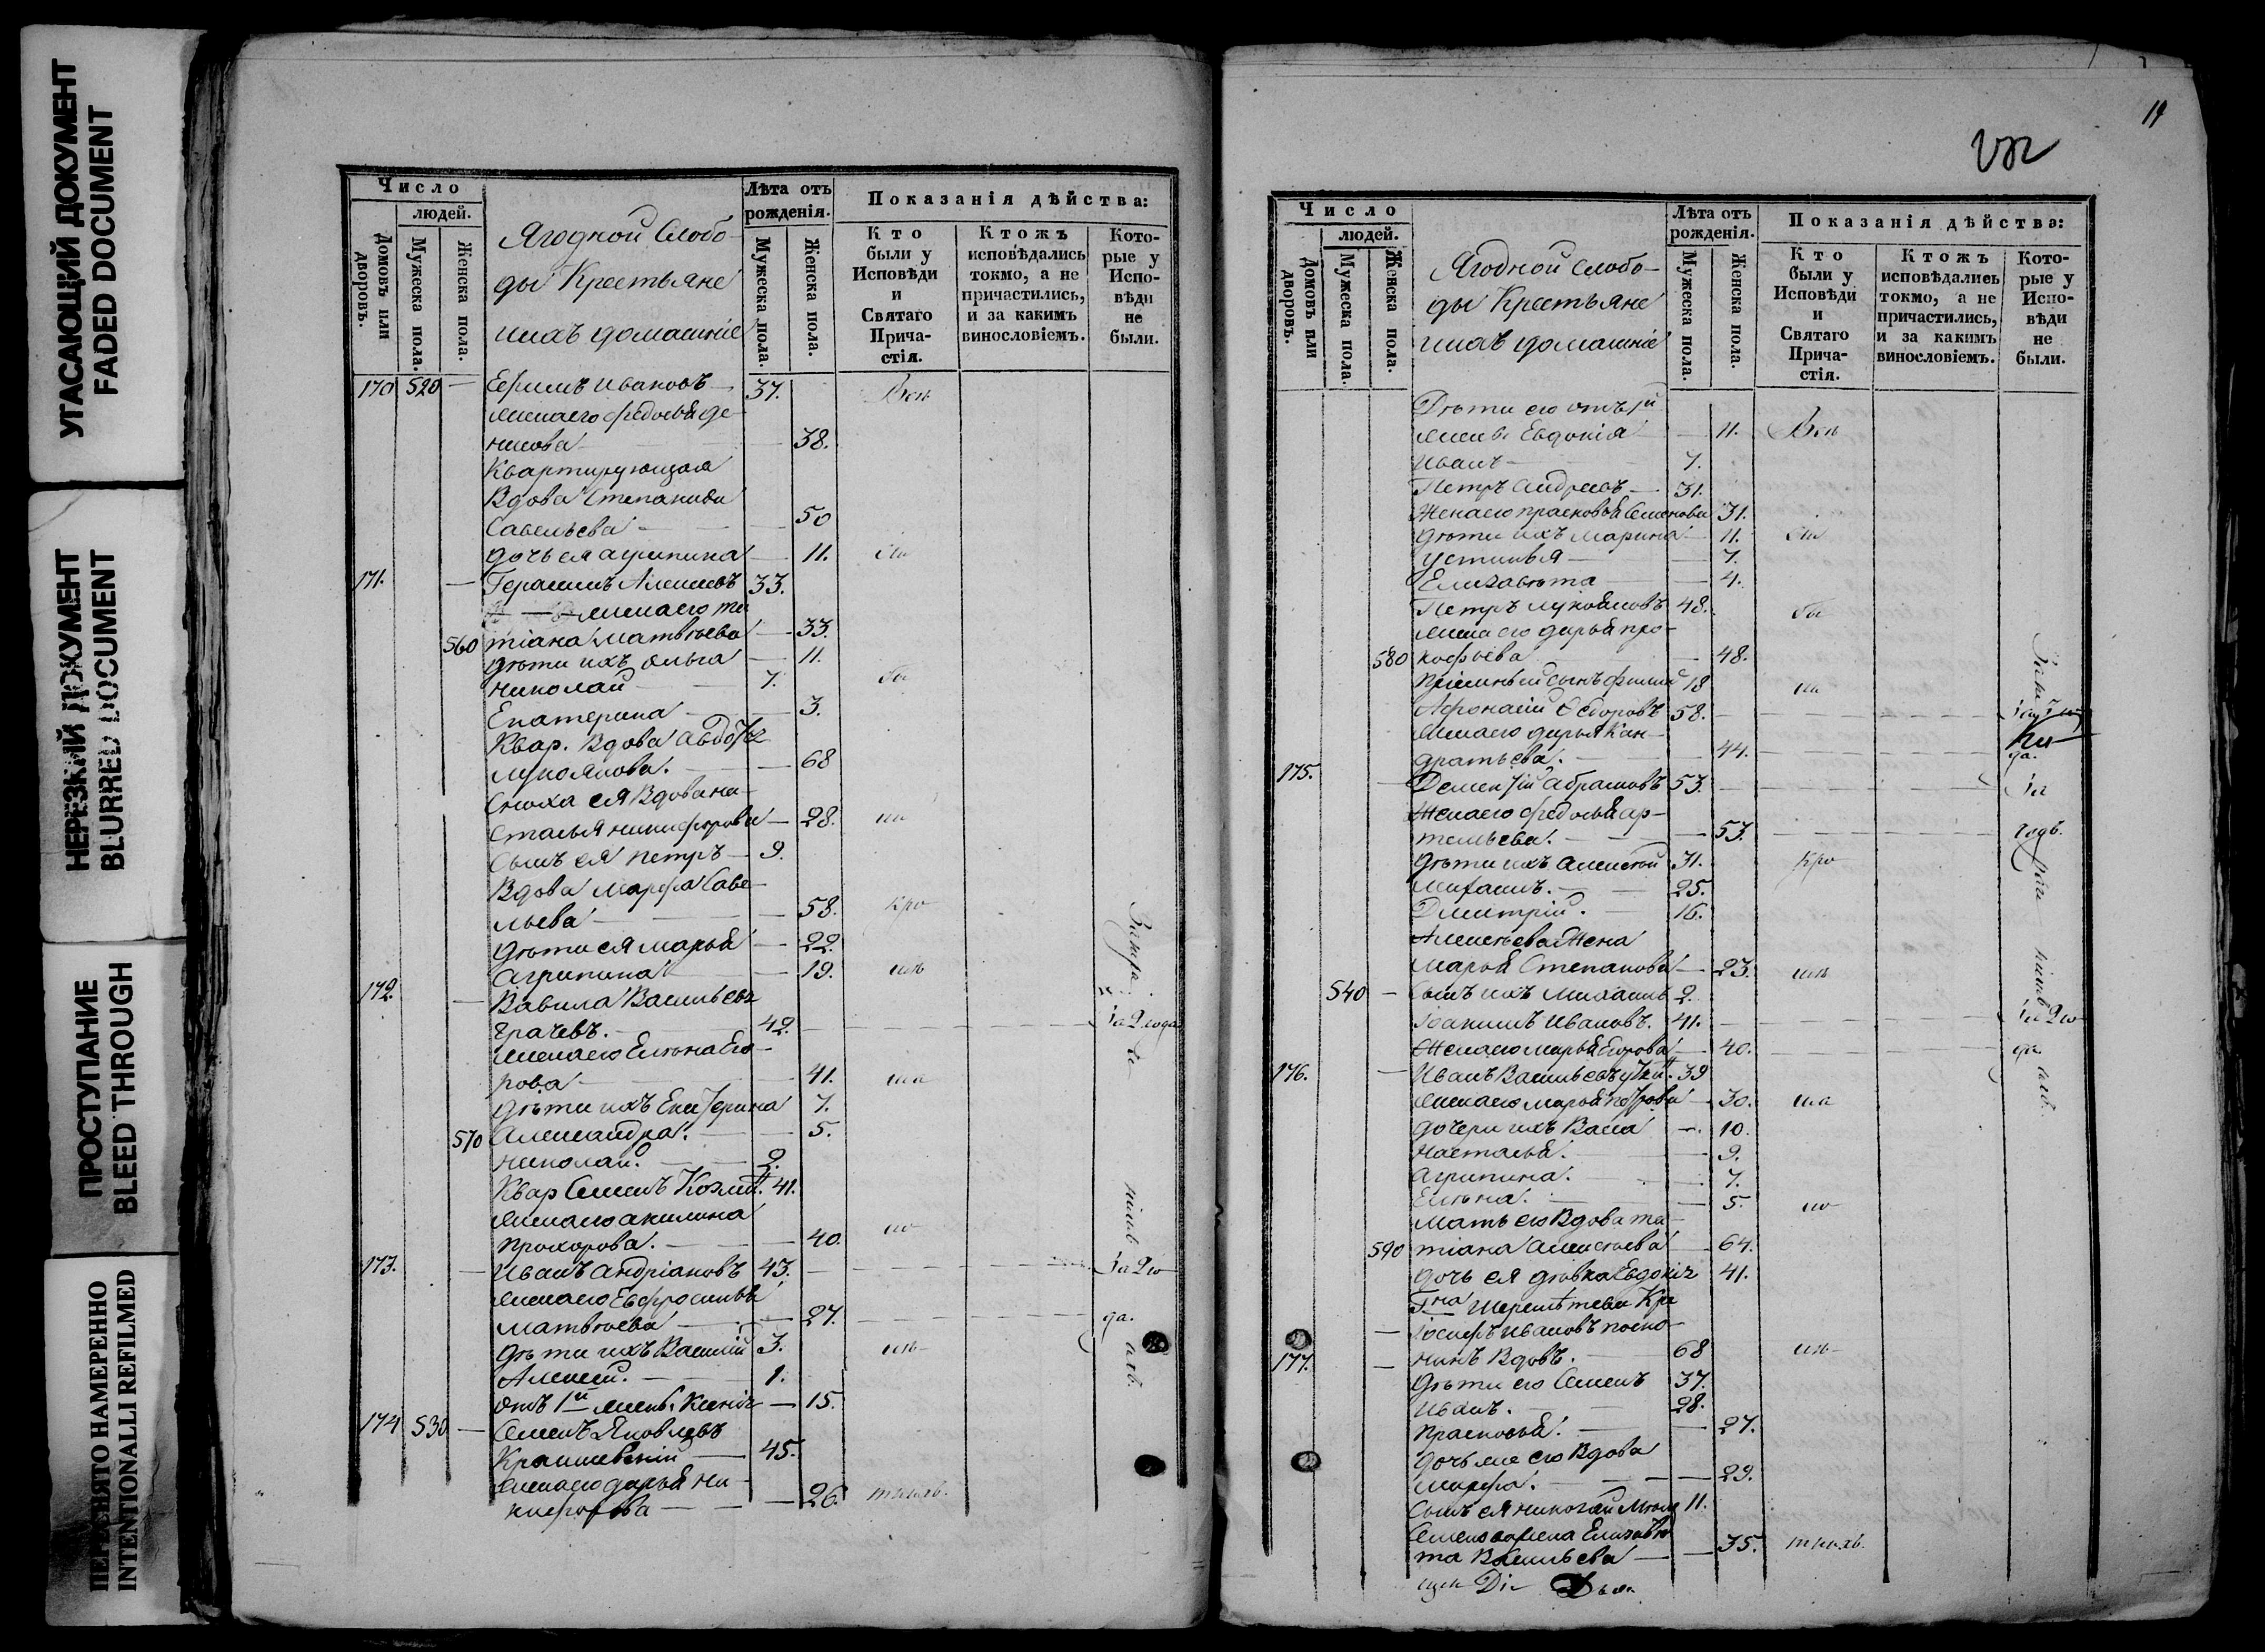 УГАСАЮЩИЙ ДОКУМЕНТ
FADED DOCUMENT
НЕРЕЗКИЙ ДОКУМЕНТ
BLURRED DOCUMENT
ПРОСТУПАНИЕ
BLEED THROUGH
ПЕРЕСНЯТО НАМЕРЕННО
INTENTIONALLI REFILMED
Число
людей.
Домовъ или дворовъ.
Мужеска пола.
Женска пола.
Ягодной Слобо-
ды Крестьяне
ихъ домашніе
Лѣта отъ рожденія.
Мужеска пола.
Женска пола.
Показанія дѣйства:
Кто были у Исповѣди и Святаго Причастія.
Ктожъ исповѣдались токмо, а не причастились, и за какимъ винословіемъ.
Которые у Исповѣди не были.
170 520 — Ефимъ Ивановъ — 37. Вси
жена его Федосья Де-
нисова — 38.
Квартирующая
Вдова Степанида
Савельева — 50
дочь ея агрипина — 11.
171. — Герасимъ Алексеевъ 33.
жена его та
560 тіана Матвѣева — 33.
дѣти ихъ Ольга — 11.
Николай — 7. бы
Екатерина — 3.
Квар. Вдова Авдотья
Лукоянова. — 68
Сноха ея Вдова на-
сталья никифорова — 28. ли
Сынъ ея Петръ — 9.
Вдова Марфа Саве-
льева — 58. кро
дѣти ея Марья — 22.
Агрипина — 19. мѣ
172. — Вавила Васильевъ
Грачевъ. — 42. за 2 года
жена его Елена Его-
рова — 41.
дѣти ихъ Екатерина 7.
570 Александра. — 5.
Николай. — 2.
Квар Семенъ Козми. 41.
жена его акилина
Прохорова. — 40.
173. — Иванъ Андріановъ 43. — за 2 го
жена его Евфросинья
Матвѣева — 27. — да.
дѣти ихъ Василій 3.
Алексей. — 1.
отъ 1й жены Ксенія — 15.
174 530 — Семенъ Яковлевъ
45.
жена его дарья Ни-
кифорова — 26.
19
Число
людей.
Домовъ или дворовъ.
Мужеска пола.
Женска пола.
Ягодной слобо-
ды Крестьяне
ихъ домашніе
Лѣта отъ рожденія.
Мужеска пола.
Женска пола.
Показанія дѣйства:
Кто были у Исповѣди и Святаго Причастія.
Ктожъ исповѣдались токмо, а не причастились, и за какимъ винословіемъ.
Которые у Исповѣди не были.
Дѣти его отъ 1й
жены Евдокія — 11. Вси
Иванъ — 7.
Петръ Андреевъ — 31.
Жена его прасковья Семенова 31.
дѣти ихъ Марина — 11.
Устинья — 7.
Елизавета — 4.
Петръ Лукояновъ 48. бы
жена его дарья про-
580 кофьева — 48.
пріемный сынъ 18 ли
Афонасій Федоровъ 58. —
жена его дарья Кан-
дратьева. — 44. — да.
175. — Дементій Абрамовъ 53. — за
Жена его федосья ар-
темьева. — 53. — годъ.
дѣти ихъ алексей 31. кро
Михаилъ. — 25.
Дмитрій. — 16.
Алексѣева Жена
Марья Степанова — 23. мѣ
540 — Сынъ ихъ Михаилъ 2.
Іоакимъ Ивановъ. 41. — за 2 го
Жена его Марья Егорова — 40. — да
176. — Иванъ Васильевъ 39
жена его Марья Петрова — 30.
дочери ихъ Васса — 10.
Насталья. — 9.
Агрипина. — 7.
Елена. — 5.
мать его Вдова та-
590 тіана Алексѣева — 64.
дочь ея дѣвка Евдокія 41.
Гна Шереметева Кре
— Іосифъ Ивановъ
177. — Вдовъ. — 68
дѣти его Семенъ 37.
Иванъ. — 28.
Прасковья. — 27.
дочь же его Вдова
Марфа. — 29.
Сынъ ея Николай 11.
Семенова жена Елизаве-
та Васильева — 35.